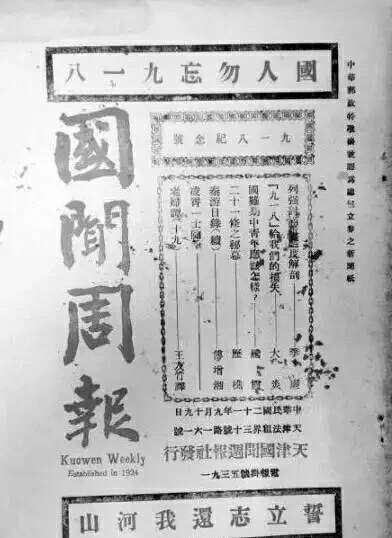 國人勿忘九一八
中華郵政特准掛號認為總包立券之新聞紙
九一八紀念號
列強 態度解剖 李
「九一八」給我們的損失 大炎
國難期中青年應該怎樣？
二十一條之秘幕 歷樵
秦游日錄（續） 傅增湘
凌霄一士隨筆
老婦譚（十九） 王 竹譯
國聞周報
Kuowen Weekly
Established in 1924
中華民國二十一年九月十九日
天津法租界三十號路一六一號
天津國聞週報社發行
電報掛號五三九一
誓立志還我河山